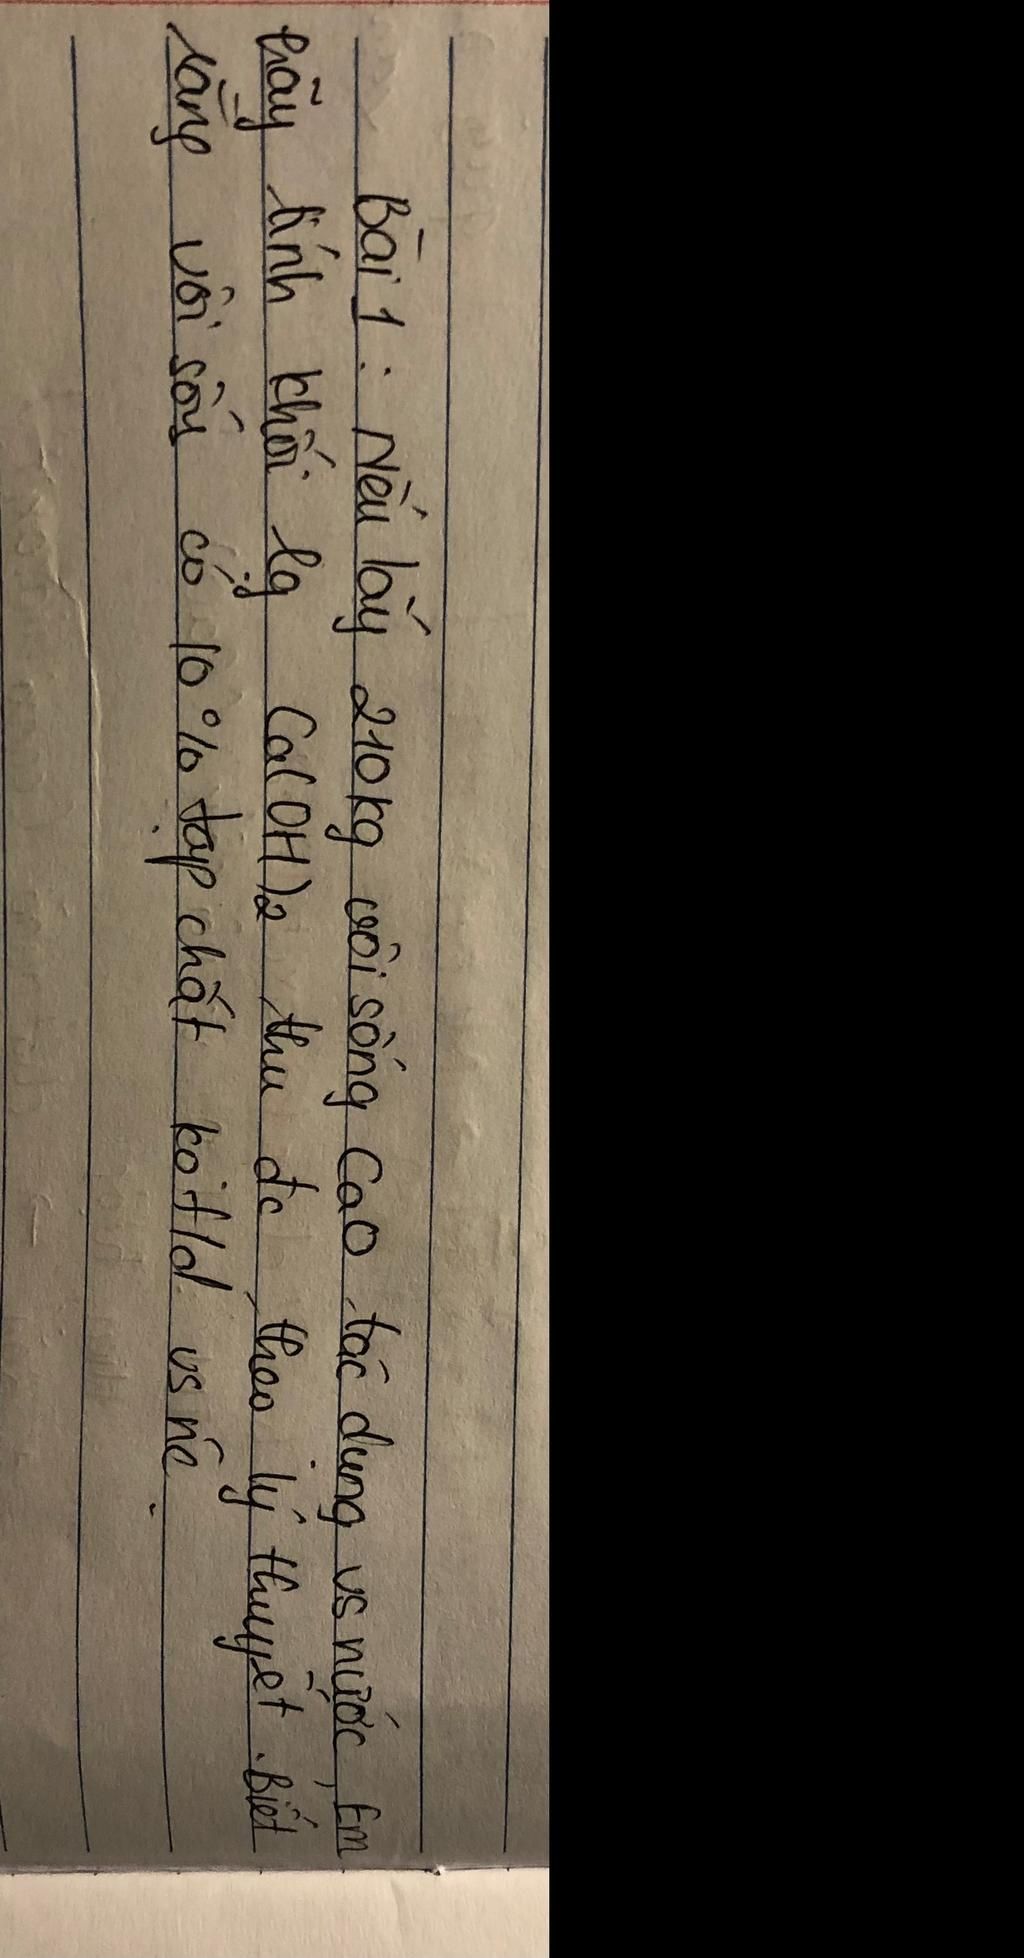 Bài 1 : Nếu lấy 210kg vôi sống CaO tác dụng vs nước, Em
hãy tính khối lg Ca(OH)2 thu đc, theo lý thuyết. Biết
rằng vôi sống có 10% tạp chất ko t/d vs nc